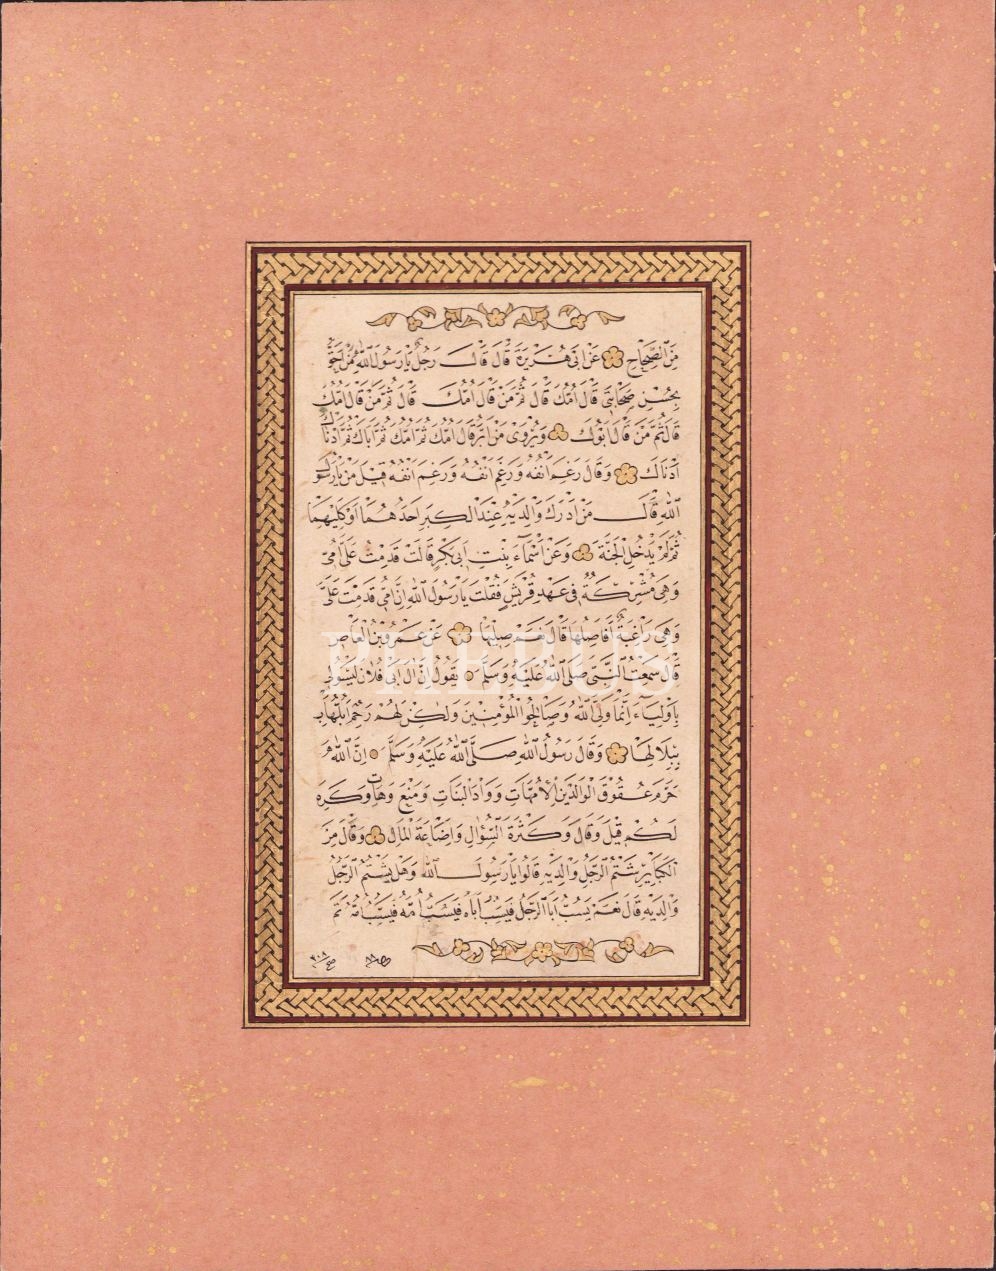 مِنَ الصِّحَاحِ عَنْ اَبِى هُرَيْرَةَ قَالَ قَالَ رَجُلٌ يَا رَسُولَ اللّٰهِ مَنْ اَحَقُّ
بِحُسْنِ صَحَابَتِى قَالَ اُمُّكَ قَالَ ثُمَّ مَنْ قَالَ اُمُّكَ قَالَ ثُمَّ مَنْ قَالَ اُمُّكَ
قَالَ ثُمَّ مَنْ قَالَ اَبُوكَ وَيُرْوٰى مَنْ اَبَرُّ قَالَ اُمَّكَ ثُمَّ اُمَّكَ ثُمَّ اَبَاكَ ثُمَّ اَدْنَاكَ
اَدْنَاكَ وَقَالَ رَغِمَ اَنْفُهُ وَرَغِمَ اَنْفُهُ وَرَغِمَ اَنْفُهُ قِيلَ مَنْ يَا رَسُولَ
اللّٰهِ قَالَ مَنْ اَدْرَكَ وَالِدَيْهِ عِنْدَ الْكِبَرِ اَحَدَهُمَا اَوْ كِلَيْهِمَا
ثُمَّ لَمْ يَدْخُلِ الْجَنَّةَ وَعَنْ اَسْمَاءَ بِنْتِ اَبِى بَكْرٍ قَالَتْ قَدِمَتْ عَلَىَّ اُمِّى
وَهِىَ مُشْرِكَةٌ فِى عَهْدِ قُرَيْشٍ فَقُلْتُ يَا رَسُولَ اللّٰهِ اِنَّ اُمِّى قَدِمَتْ عَلَىَّ
وَهِىَ رَاغِبَةٌ اَفَاَصِلُهَا قَالَ نَعَمْ صِلِيهَا عَنْ عَمْرِو بْنِ الْعَاصِ
قَالَ سَمِعْتُ النَّبِىَّ صَلَّى اللّٰهُ عَلَيْهِ وَسَلَّمَ يَقُولُ اِنَّ اٰلَ اَبِى فُلَانٍ لَيْسُوا لِى
بِاَوْلِيَاءَ اِنَّمَا وَلِىَّ اللّٰهُ وَصَالِحُوا الْمُؤْمِنِينَ وَلٰكِنْ لَهُمْ رَحِمٌ اَبُلُّهَا بِـ
بِبَلَالِهَا وَقَالَ رَسُولُ اللّٰهِ صَلَّى اللّٰهُ عَلَيْهِ وَسَلَّمَ اِنَّ اللّٰهَ
حَرَّمَ عُقُوقَ الْوَالِدَيْنِ الْاُمَّهَاتِ وَوَأْدَ الْبَنَاتِ وَمَنْعَ وَهَاتِ وَكَرِهَ
لَكُمْ قِيلَ وَقَالَ وَكَثْرَةَ السُّؤَالِ وَاِضَاعَةَ الْمَالِ وَقَالَ مِنَ
الْكَبَائِرِ شَتْمُ الرَّجُلِ وَالِدَيْهِ قَالُوا يَا رَسُولَ اللّٰهِ وَهَلْ يَشْتُمُ الرَّجُلُ
وَالِدَيْهِ قَالَ نَعَمْ يَسُبُّ اَبَا الرَّجُلِ فَيَسُبُّ اَبَاهُ فَيَسُبُّ اُمَّهُ فَيَسُبُّ اُمَّهُ
PHEBUS